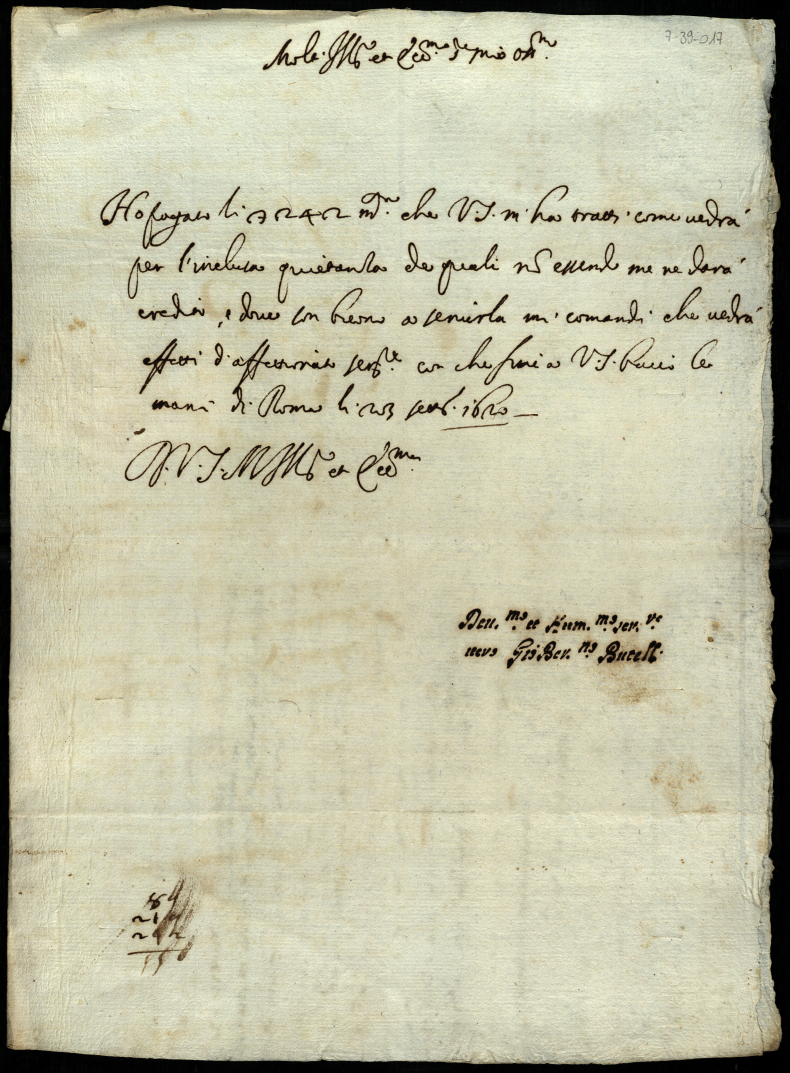 7-39-017
Molto Ill.re et Ecc.mo S.re mio oss.mo
Ho pagato li 242 m.ta che V.S. m'ha tratti come vedrà
per l'inclusa quietanza de quali nõ essend me ne darà
credito, e dove son buono a servirla mi comandi che vedrà
effetti d'affettionato ser.re con che fine a V.S. bacio le
mani di Roma li 23 1620
D. V. S. M Ill.re et Ecc.ma
Dev.mo et Hum.mo ser.re
vero Gio Ber.no Bucell.